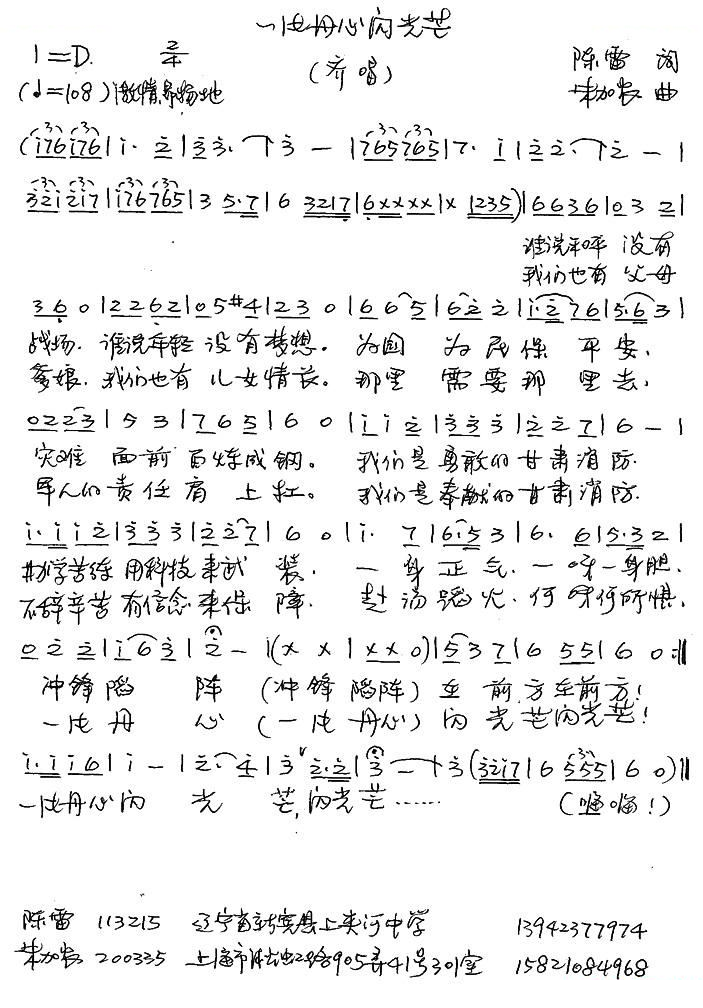 一片丹心闪光芒
1=D. 2/4 (齐唱) 陈雷 词
(♩=108) 激情昂扬地 曲
(i76 i76 | i· 2 | 3 3· | 3 — | 765 765 | 7· i | 2 2· | 2 — |
3 2 i 2 i 7 | i76 765 | 3 5·7 | 6 3217 | 6 x x x x | x 1235) | 6 6 3 6 | 0 3 2 |
谁说和平 没有
我们也有 父母
3 6 0 | 2 2 6 2 | 0 5 #4 | 2 3 0 | 6 6 5 | 6 2 2 | i·2 7 6 | 5·6 3 |
战场. 谁说年轻 没有梦想. 为国 为民保 平安,
爹娘. 我们也有 儿女情长. 那里 需要那 里去,
0 2 2 3 | 5 3 | 7 6 5 | 6 0 | i i 2 | 3 3 3 | 2 2 7 | 6 — |
灾难 面前 百炼成钢. 我们是勇敢的甘肃消防.
军人的责任肩 上扛. 我们是奉献的甘肃消防.
i· i i 2 | 3 3 3 | 2 2 7 | 6 0 | i· 7 | 6 i 5 3 | 6· 6 | 5·3 2 |
勤学苦练 用科技来武 装. 一 身正气. 一呀一身胆.
不辞辛苦 有信念来保 障. 赴汤蹈火. 何呀何所惧.
0 2 2 | i 6 3 | 2 — | (x x | x x 0) | 5 3 7 | 6 5 5 | 6 0 :||
冲锋陷 阵 (冲锋陷阵) 在前方在前方!
一片丹 心 (一片丹心) 闪光芒闪光芒!
i· i i 6 | i — | 2· 4 | 3 ∨ 2·2 | 3 — | 3 (32i7 | 6 555 | 6 0) ||
一片丹心闪 光 芒, 闪光芒…… (嗨嗨!)
陈雷 113215 辽宁省新宾县上夹河中学 13942377974
200335 上海市 路905弄41号301室 15821084968